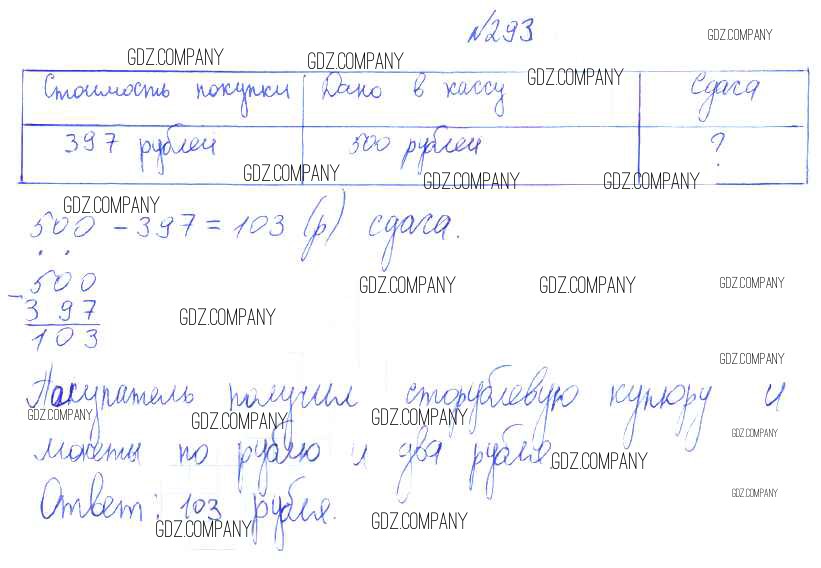 №293
GDZ.COMPANY
GDZ.COMPANY GDZ.COMPANY GDZ.COMPANY
Стоимость покупки Дано в кассу Сдача
397 рублей 500 рублей ?
GDZ.COMPANY GDZ.COMPANY GDZ.COMPANY
GDZ.COMPANY
500 - 397 = 103 (р) сдача.
500
GDZ.COMPANY GDZ.COMPANY GDZ.COMPANY
- 397
GDZ.COMPANY
103
GDZ.COMPANY
Покупатель получил сторублевую купюру и
GDZ.COMPANY GDZ.COMPANY GDZ.COMPANY GDZ.COMPANY
монеты по рублю и два рубля.
GDZ.COMPANY
Ответ: 103 рубля.
GDZ.COMPANY
GDZ.COMPANY GDZ.COMPANY